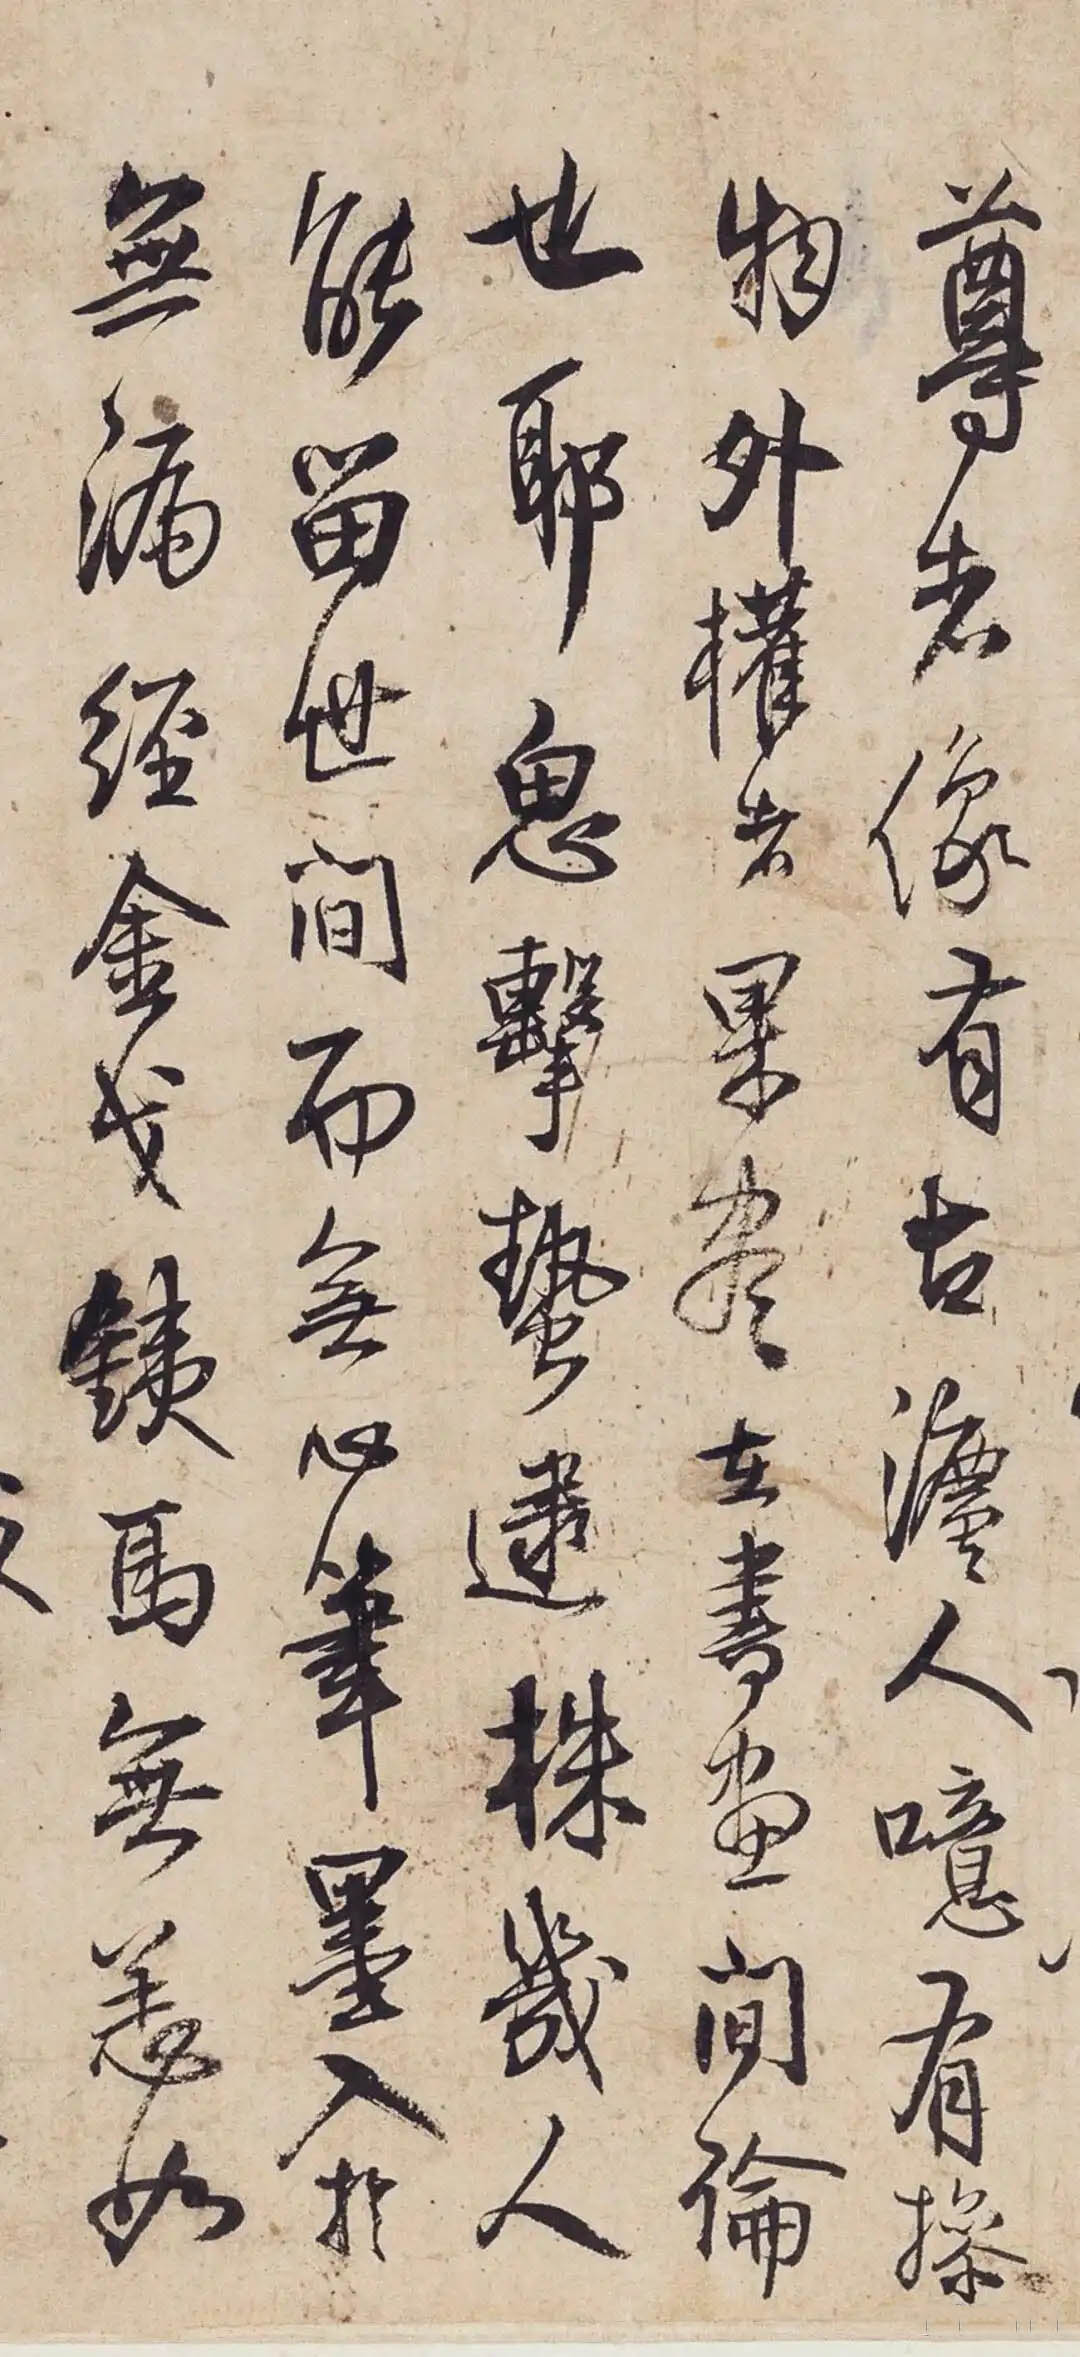 尊者像有古澹人噫有操
物外權者果能在書畫間論
也耶鬼擊蟄遺株幾人
能留世間而無心筆墨入於
無漏經金戈鐵馬無恙如